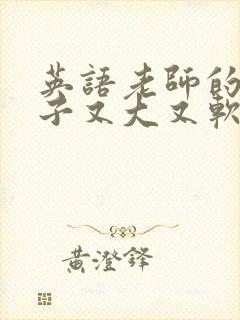 英語老師的
子又大又軟
黃澄鋒